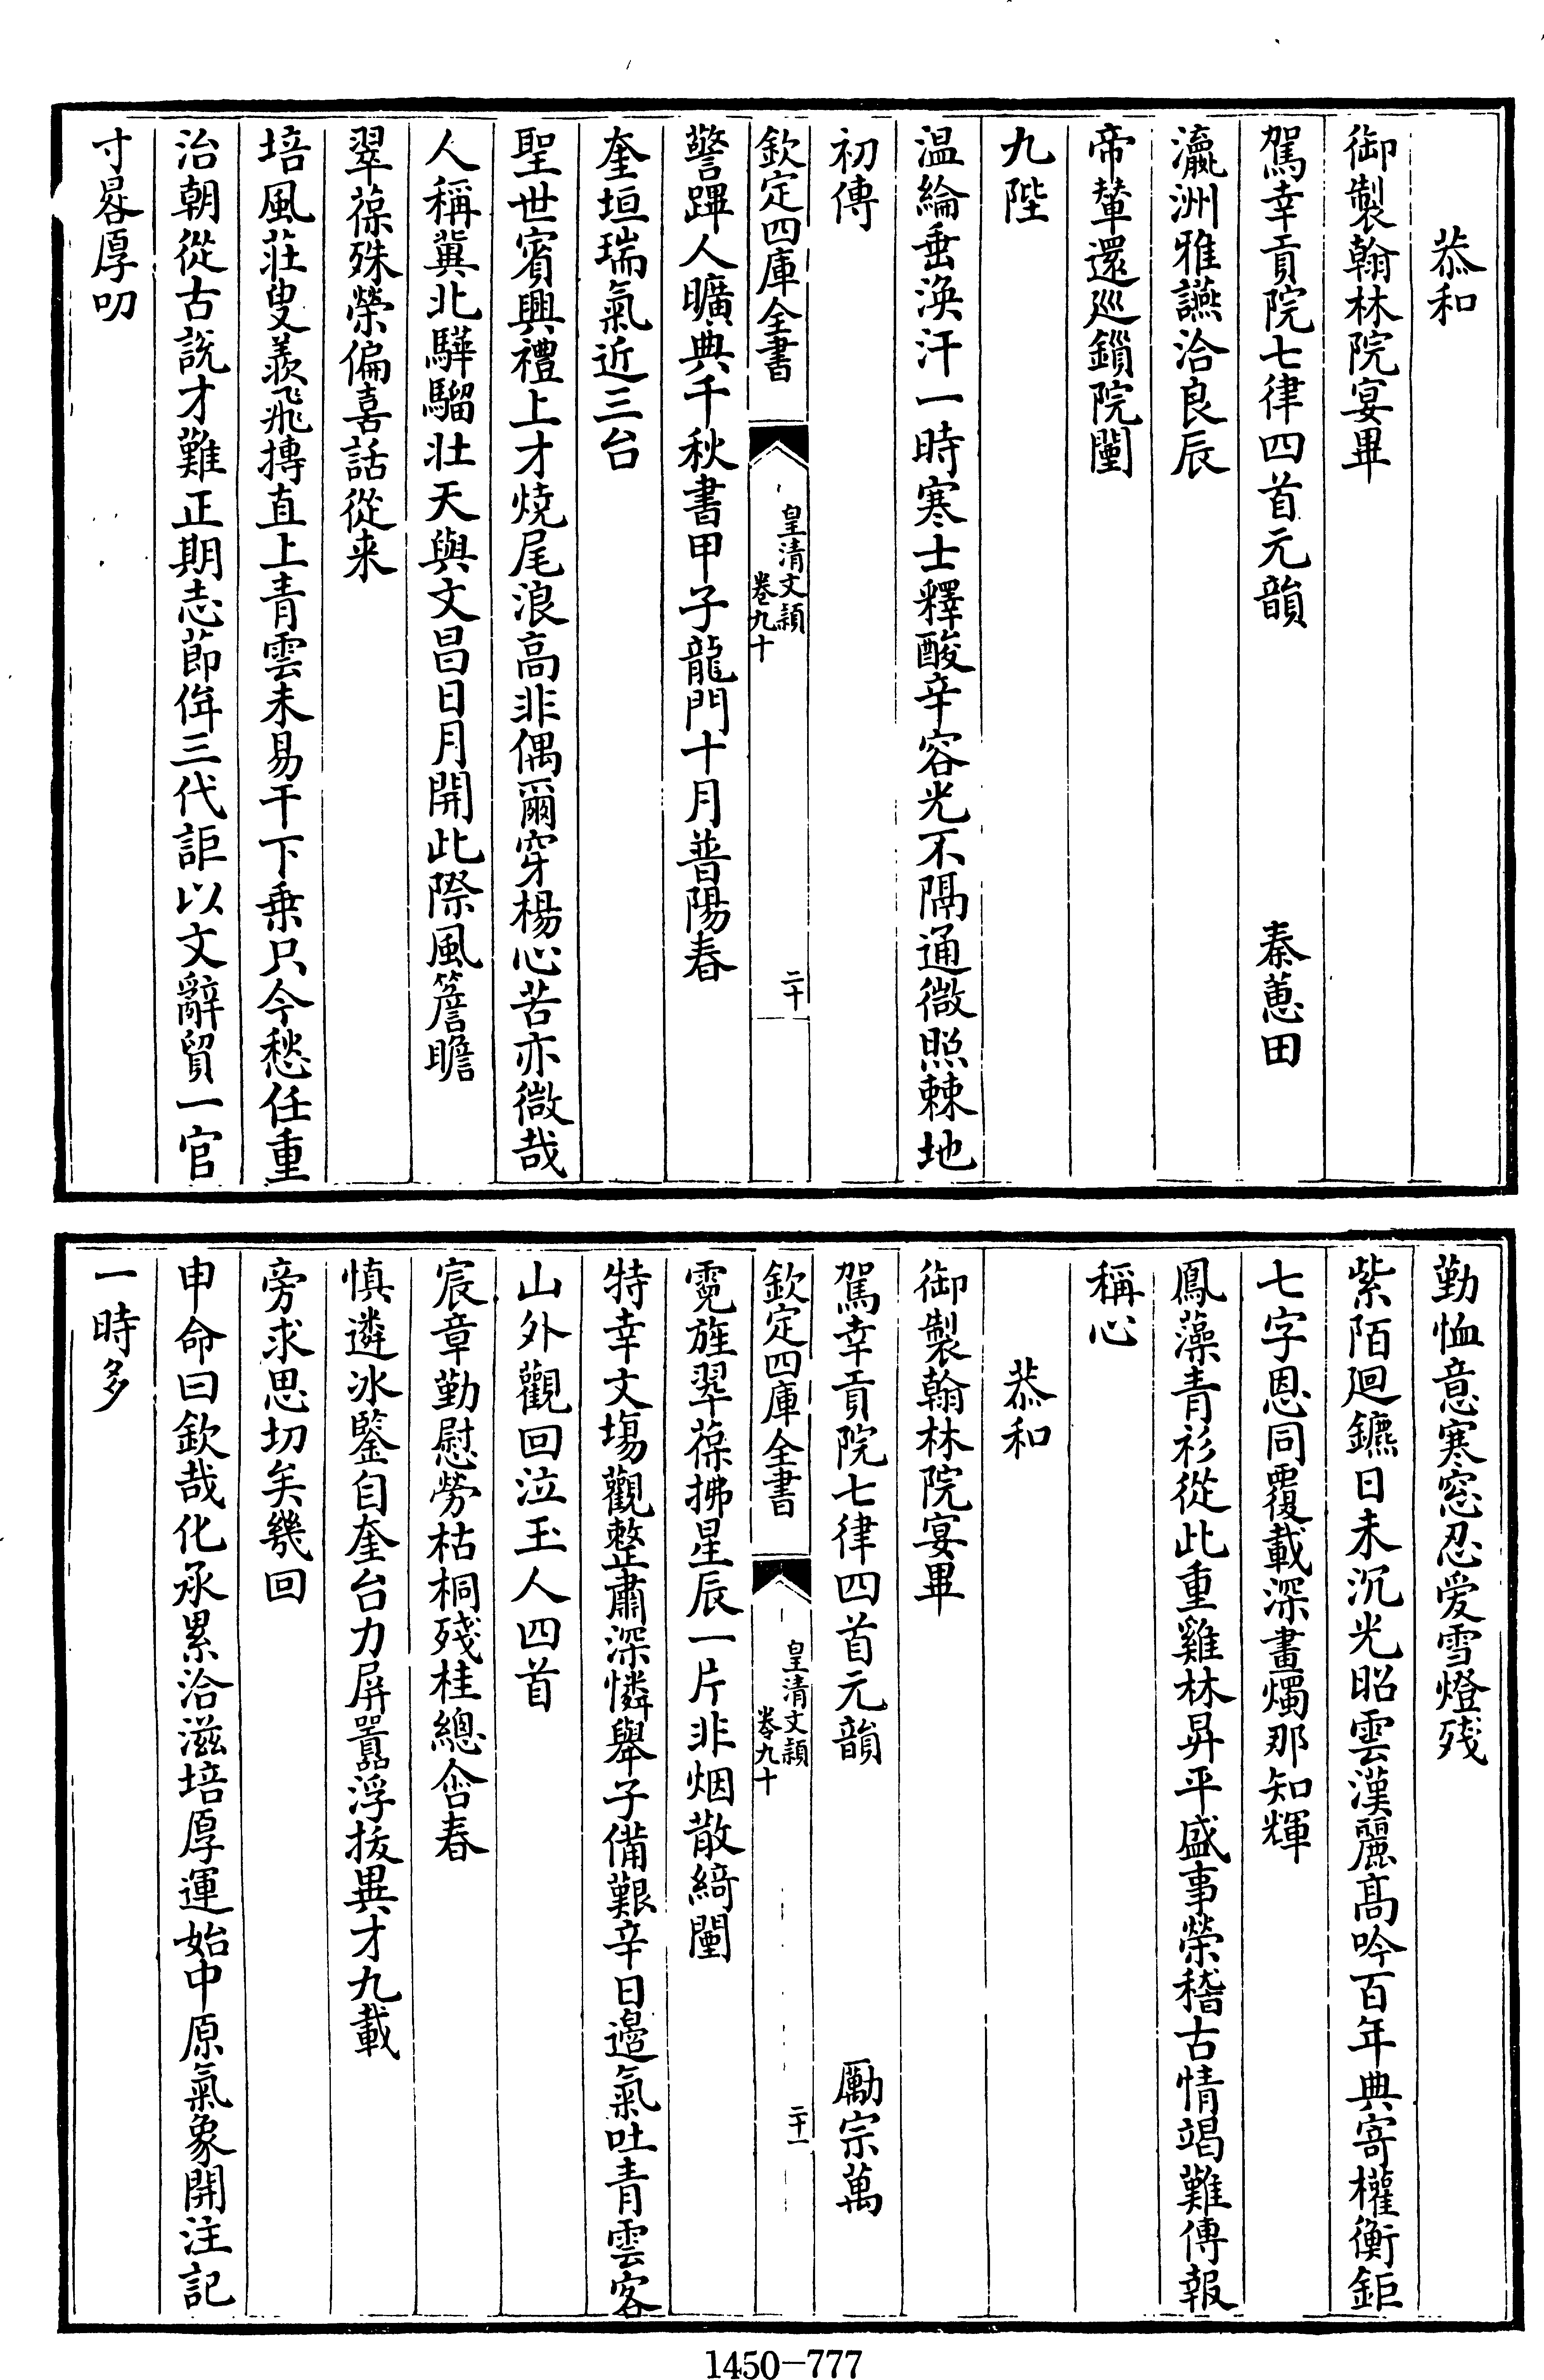 恭和
御製翰林院宴畢
駕幸貢院七律四首元韻 秦蕙田
瀛洲雅讌洽良辰
帝輦還巡鎖院闉
九陛
温綸垂渙汗一時寒士釋酸辛容光不隔通微照棘地
初傳
欽定四庫全書
皇清文穎
卷九十
二十
警蹕人曠典千秋書甲子龍門十月普陽春
奎垣瑞氣近三台
聖世賓興禮上才燒尾浪高非偶爾穿楊心苦亦微哉
人稱冀北驊騮壯天與文昌日月開此際風簷瞻
翠葆殊榮偏喜話從来
培風莊叟羨飛摶直上青雲未易干下乗只今愁任重
治朝從古說才難正期志節侔三代詎以文辭貿一官
寸晷厚叨
勤恤意寒窓忍愛雪燈殘
紫陌廻鑣日未沉光昭雲漢麗髙吟百年典寄權衡鉅
七字恩同覆載深畫燭那知輝
鳳藻青衫從此重雞林昇平盛事榮稽古情竭難傳報
稱心
恭和
御製翰林院宴畢
駕幸貢院七律四首元韻 勵宗萬
欽定四庫全書
皇清文穎
卷九十
二十一
霓旌翠葆拂星辰一片非烟散綺闉
特幸文塲觀整肅深憐舉子備艱辛日邉氣吐青雲客
山外觀回泣玉人四首
宸章勤慰勞枯桐殘桂總含春
慎遴冰鑒自奎台力屏囂浮拔異才九載
旁求思切矣幾回
申命曰欽哉化承累洽滋培厚運始中原氣象開注記
一時多
1450-777